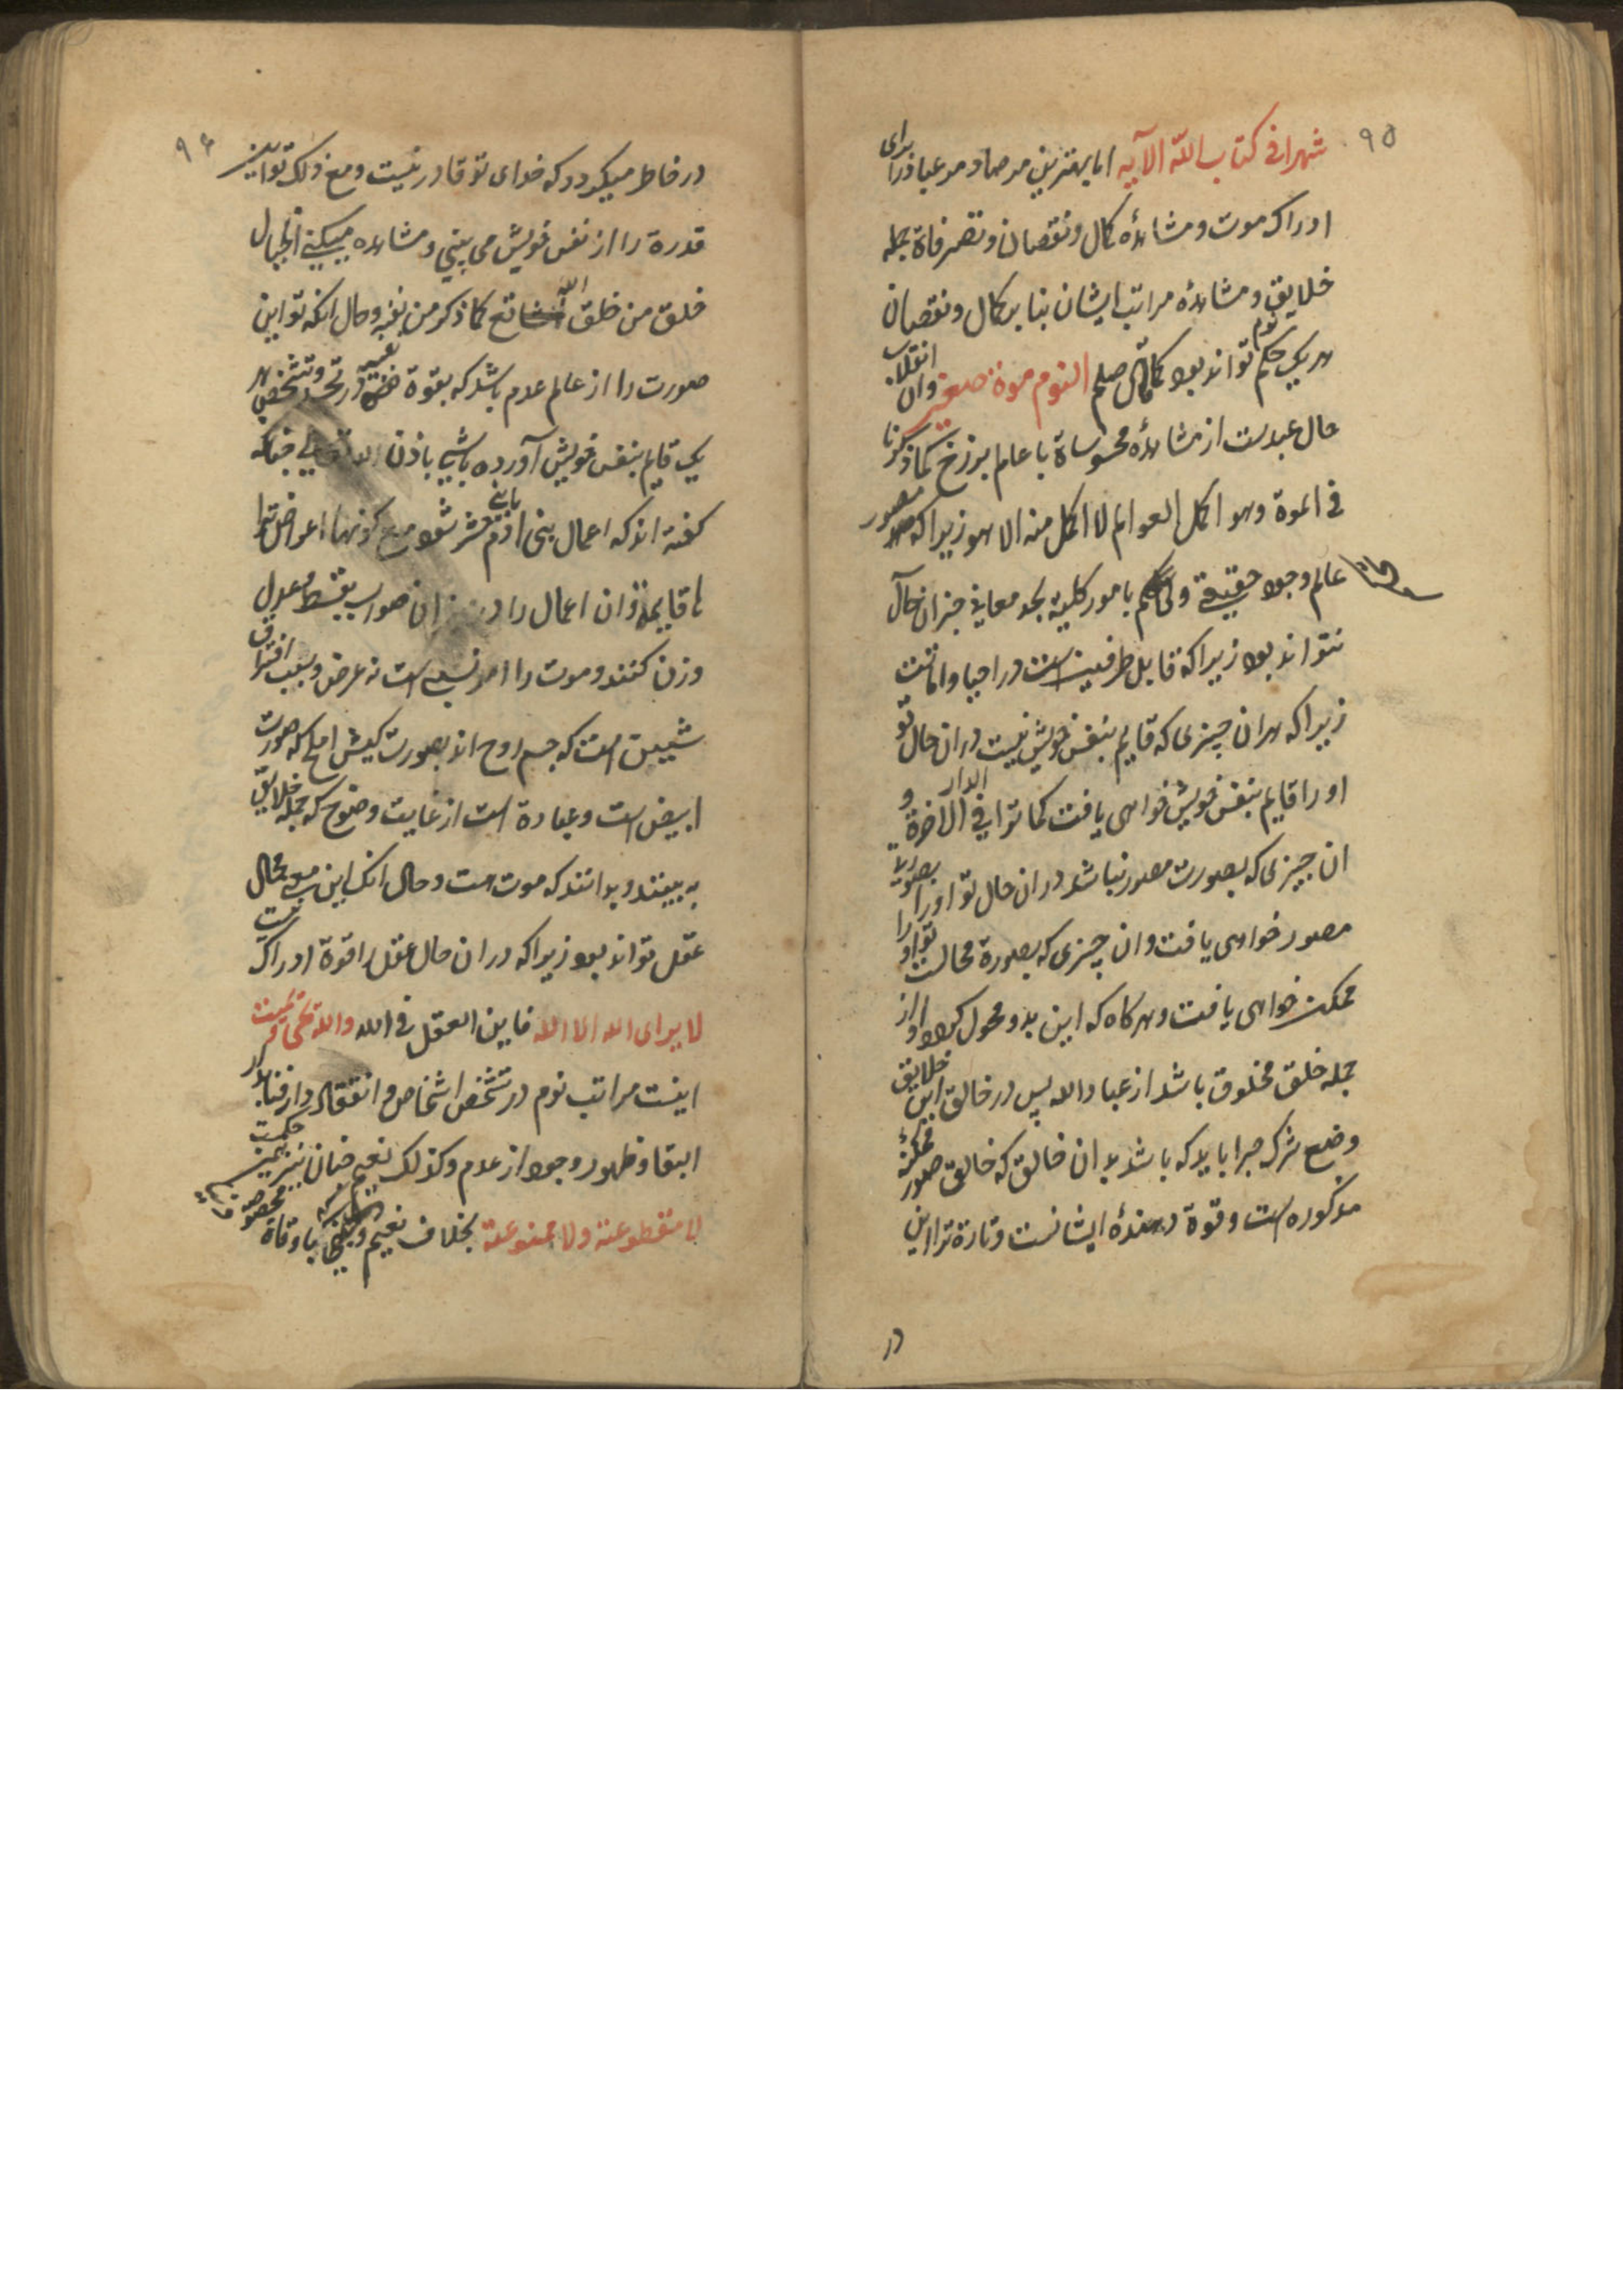 ۹۵
شهرا فی کتاب الله الآیه اما بهترین مرصاد مر عباد را برای
ادراک موت و مشاهدهٔ کمال و نقصان و تصرفاة جمله
خلایق و مشاهدهٔ مراتب ایشان بنا بر کمال و نقصان
هر یکی حکم نوم تواند بود کما قال صلعم النوم موة صغیر وان انقلاب
حال عبدست از مشاهدهٔ محسوساة با عالم برزخ کما ذکرنا
فی الموة وهو اکمل العوالم لا اکمل منه الا هو زیرا که مصور
عالم وجود حقیقی و با مور کلیه بجد معانی جز ان حال
نتواند بود زیرا که قابل طرفین است در احیا و اماتت
زیرا که هر ان چیزی که قایم بنفس خویش نیست در ان حال تو
او را قایم بنفس خویش خواهی یافت کما تراه فی الدار الاخرة و
ان چیزی که بصورت مصور نباشد در ان حال تو او را بصورت
مصور خواهی یافت و ان چیزی که بصورة محالست تو او را
ممکن خواهی یافت و هر کاه که این بدو محول کردد و از
جمله خلق مخلوق باشد از عباد الله پس در خالق این خلایق
وضع شرک چرا باید که باشد بدان خالق که خالق صور ممکنهٔ
مذکوره است و قوة دهندهٔ ایشانست و تارة ترا این
در
۹۶
در خاطر میکردد که خدای تو قادر نیست و مع ذلک تو این
قدرة را از نفس خویش می بینی و مشاهده میکنی از خیال
خلق من خلق الله تع کما ذکر من قبل و حال انکه تو این
صورت را از عالم عدم باشد که بقوة در تحد و تشخص هر
یکی قایم بنفس خویش آورده باشی باذن الله تعالی چنانکه
کفته اند که اعمال بنی ادم شود مع کونها اعراض
لا قایمة و ان اعمال را در میزان بقسط و عدل
وزن کنند و موت را امر نسبی است نه عرض و بسبب افتراق
شیین است که جسم و روح اند بصورت کبش املح که صورت
ابیض است و عبارة است از غایت وضوح که جمله خلایق
به بینند و بدانند که موت است و حال انک این محال
عقل تواند بود زیرا که در ان حال عقل را قوة ادراک نیست
لا یرای الله الا الله فاین العقل فی الله و الله یحی و یمیت
اینست مراتب نوم در تشخص اشخاص و انتقال از دار فنا بدار
البقا و ظهور وجود از عدم و کذلک نعیم جنان نیز
لا مقطوعة ولا ممنوعة بخلاف نعیم با وقاة مخصوصة